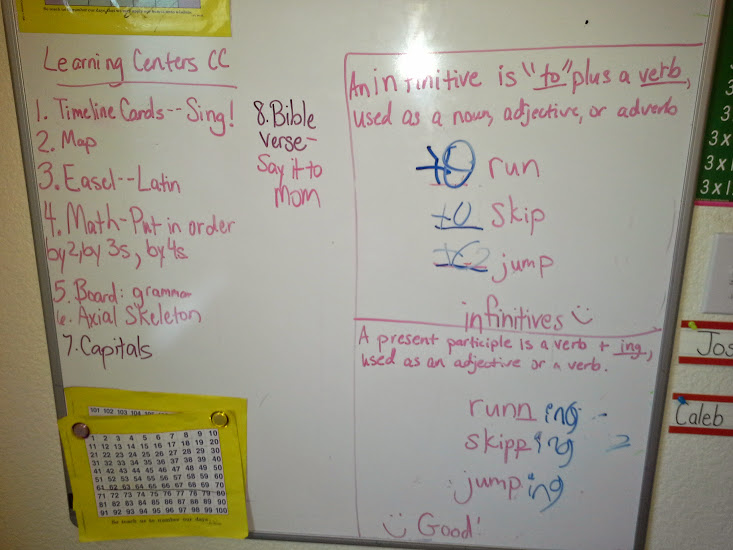 Learning Centers CC
1. Timeline Cards--Sing!
2. Map
3. Easel--Latin
4. Math-Put in order
by 2, by 3s, by 4s
5. Board: grammar
6. Axial Skeleton
7. Capitals
8. Bible
Verse-
Say it to
Mom
An infinitive is "to" plus a verb,
used as a noun, adjective, or adverb
to run
to skip
to jump
infinitives
A present participle is a verb + ing,
used as an adjective or a verb.
running
skipping
jumping
Good!
101 102 103 104
1 2 3 4 5 6 7 8 9 10
11 12 13 14 15 16 17 18 19 20
21 22 23 24 25 26 27 28 29 30
31 32 33 34 35 36 37 38 39 40
41 42 43 44 45 46 47 48 49 50
51 52 53 54 55 56 57 58 59 60
61 62 63 64 65 66 67 68 69 70
71 72 73 74 75 76 77 78 79 80
81 82 83 84 85 86 87 88 89 90
91 92 93 94 95 96 97 98 99 100
3
3
3
3 x
3 x 1
3 x 1
Jos
Caleb